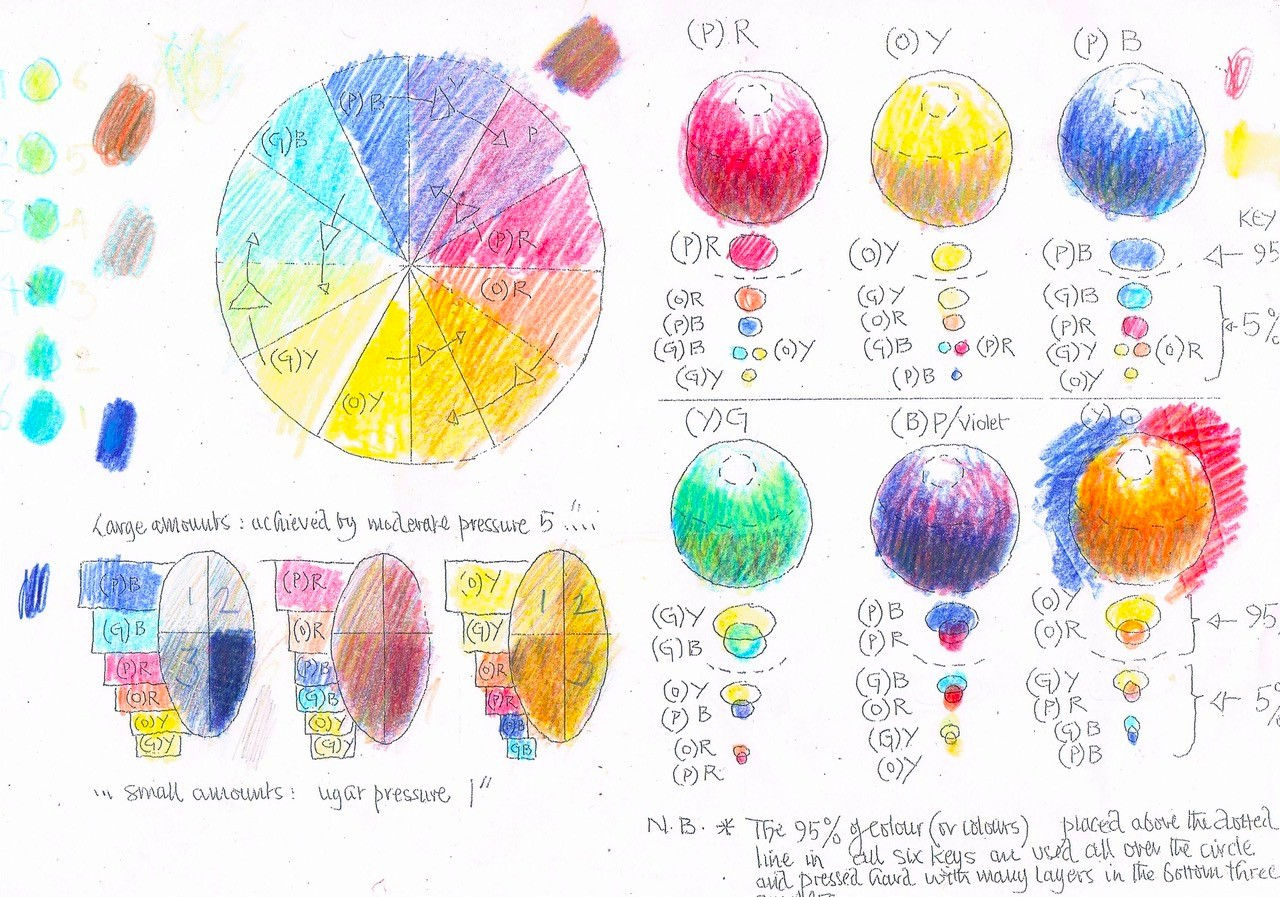 (P)R
(O)Y
(P)B
(P)B
V
P
(G)B
(P)R
(O)R
(G)Y
(O)Y
6
5
4
3
2
1
KEY
(P)R
(O)R
(P)B
(G)B (O)Y
(G)Y
(O)Y
(G)Y
(O)R
(G)B (P)R
(P)B
(P)B
(G)B
(P)R
(G)Y (O)R
(O)Y
95
5%
(Y)G
(B)P/Violet
(Y)O
(G)Y
(G)B
(O)Y
(P)B
(O)R
(P)R
(P)B
(P)R
(G)B
(O)R
(G)Y
(O)Y
(O)Y
(O)R
(G)Y
(P)R
(G)B
(P)B
95
5%
Large amounts: achieved by moderate pressure 5 "....
(P)B
(G)B
(P)R
(O)R
(O)Y
(G)Y
1 2
3
(P)R
(O)R
(P)B
(G)B
(O)Y
(G)Y
(O)Y
(G)Y
(O)R
(P)R
(P)B
GB
1 2
3
"... small amounts: pressure 1"
N.B. * The 95% of colour (or colours) placed above the dotted
line in all six keys are used all over the circle
and pressed hard with many layers in the bottom three